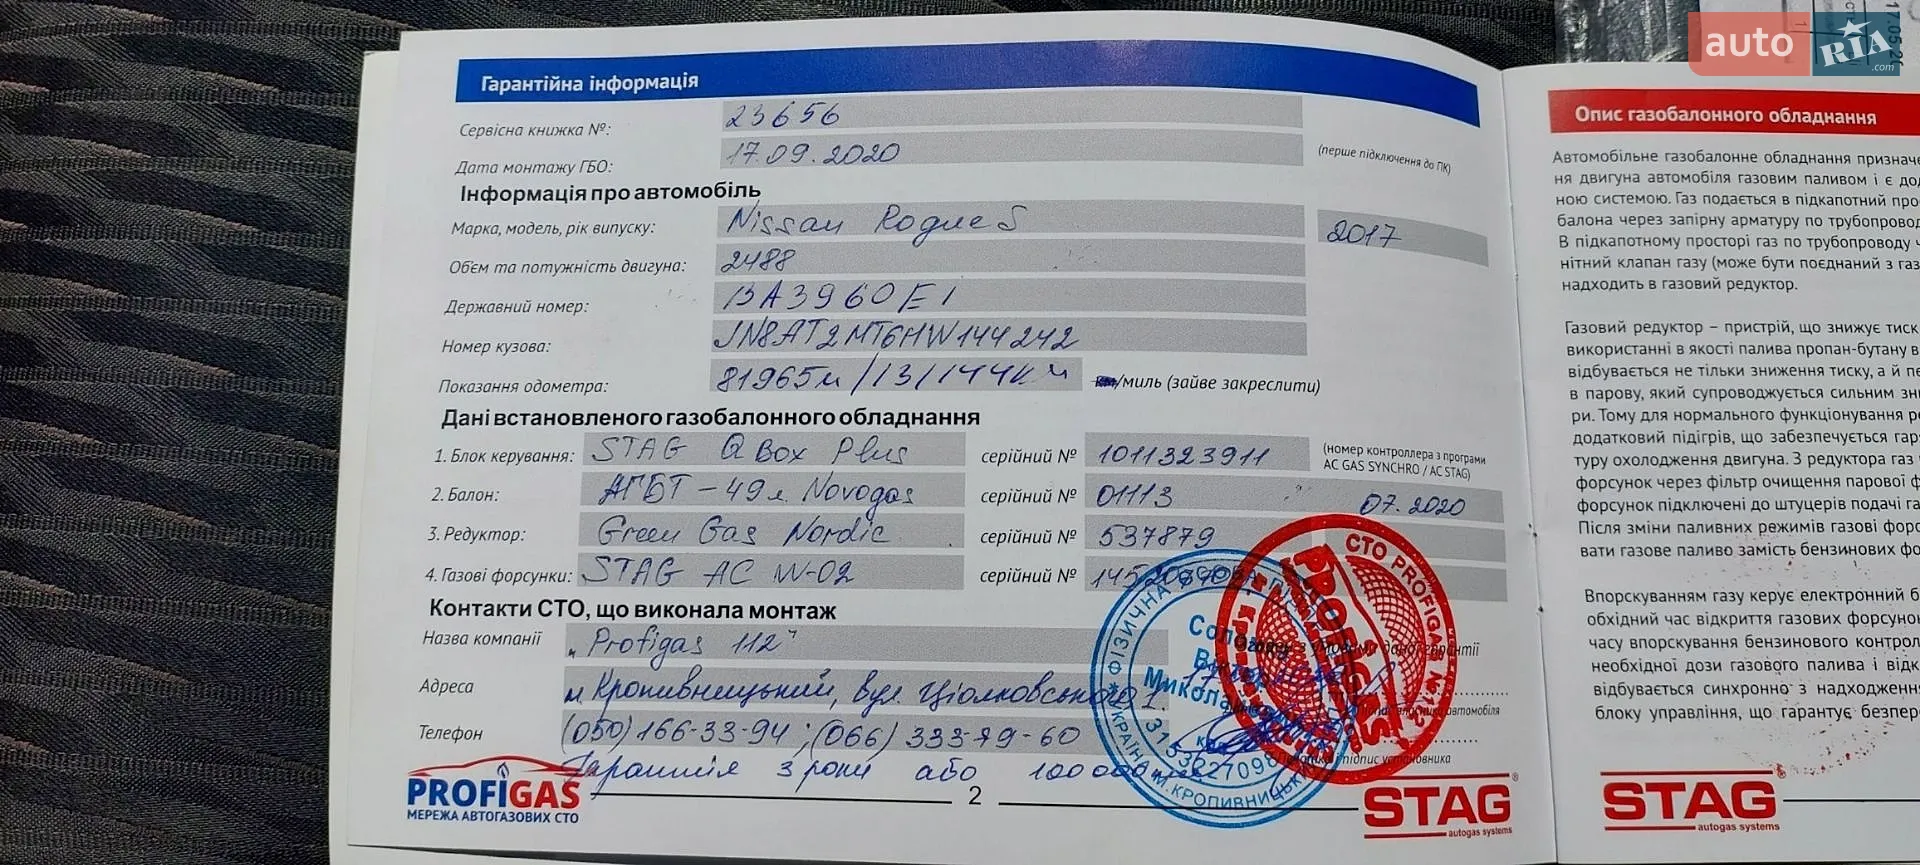 auto RIA.com
Гарантійна інформація
Сервісна книжка №: 23656
Дата монтажу ГБО: 17.09.2020 (перше підключення до ПК)
Інформація про автомобіль
Марка, модель, рік випуску: Nissan Rogue S 2017
Об'єм та потужність двигуна: 2488
Державний номер: ВА3960ЕІ
Номер кузова: JN8AT2MT6HW144242
Показання одометра: 81965м/131144км км/миль (зайве закреслити)
Дані встановленого газобалонного обладнання
1. Блок керування: STAG QBox Plus серійний № 1011323911 (номер контроллера з програми
AC GAS SYNCHRO / AC STAG)
2. Балон: АГБТ-49л Novogas серійний № 01113 07.2020
3. Редуктор: Green Gas Nordic серійний № 537879
4. Газові форсунки: STAG AC W-02 серійний №
Контакти СТО, що виконала монтаж
Назва компанії „Profigas 112"
Адреса м.Кропивницький, вул. Ціолковського
Телефон (050) 166-33-94; (066) 333-79-60
Гарантія 3 роки або 100 000
PROFIGAS
МЕРЕЖА АВТОГАЗОВИХ СТО
2
STAG
autogas systems
СТО PROFIGAS №112
Опис газобалонного обладнання
Автомобільне газобалонне обладнання признач
ня двигуна автомобіля газовим паливом і є до
ною системою. Газ подається в підкапотний про
балона через запірну арматуру по трубопровод
В підкапотному просторі газ по трубопроводу
нітний клапан газу (може бути поєднаний з газ
надходить в газовий редуктор.
Газовий редуктор – пристрій, що знижує тиск
використанні в якості палива пропан-бутану в
відбувається не тільки зниження тиску, а й пе
в парову, який супроводжується сильним зн
ри. Тому для нормального функціонування р
додатковий підігрів, що забезпечується гар
туру охолодження двигуна. З редуктора газ
форсунок через фільтр очищення парової ф
форсунок підключені до штуцерів подачі га
Після зміни паливних режимів газові форс
вати газове паливо замість бензинових фо
Впорскуванням газу керує електронний б
обхідний час відкриття газових форсунок
часу впорскування бензинового контрол
необхідної дози газового палива і відк
відбувається синхронно з надходжен
блоку управління, що гарантує безпер
STAG
autogas systems